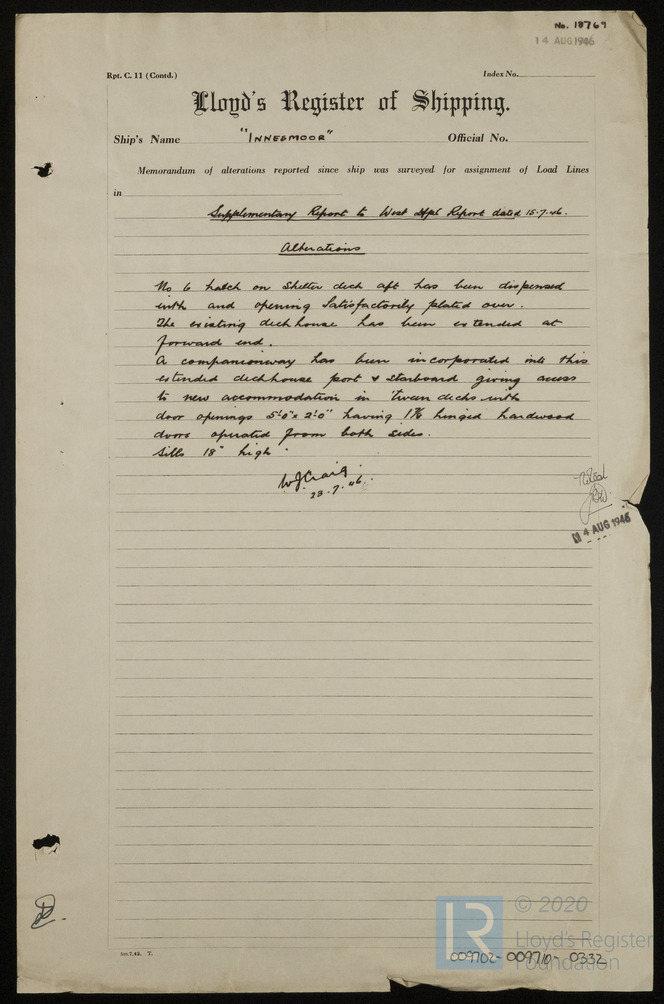 No. 18769
14 AUG 1946
Rpt. C. 11 (Contd.)
Index No.
Lloyd's Register of Shipping.
Ship's Name "INNESMOOR" Official No.
Memorandum of alterations reported since ship was surveyed for assignment of Load Lines
in
Supplementary Report to West Report dated 15.7.46.
Alterations
No 6 hatch on Shelter deck aft has been dispensed
with and opening satisfactorily plated over.
The existing deckhouse has been extended at
forward end.
A companionway has been incorporated into this
extended deckhouse port & starboard giving access
to new accommodation in 'tween decks with
door openings 5'0" x 2'0" having hinged hardwood
doors operated from both sides.
Sills 18" high.
WJCraig.
23.7.46.
Noted
14 AUG 1946
7. T.
© 2020
LR
Lloyd's Register
Foundation
009702-009710-0332